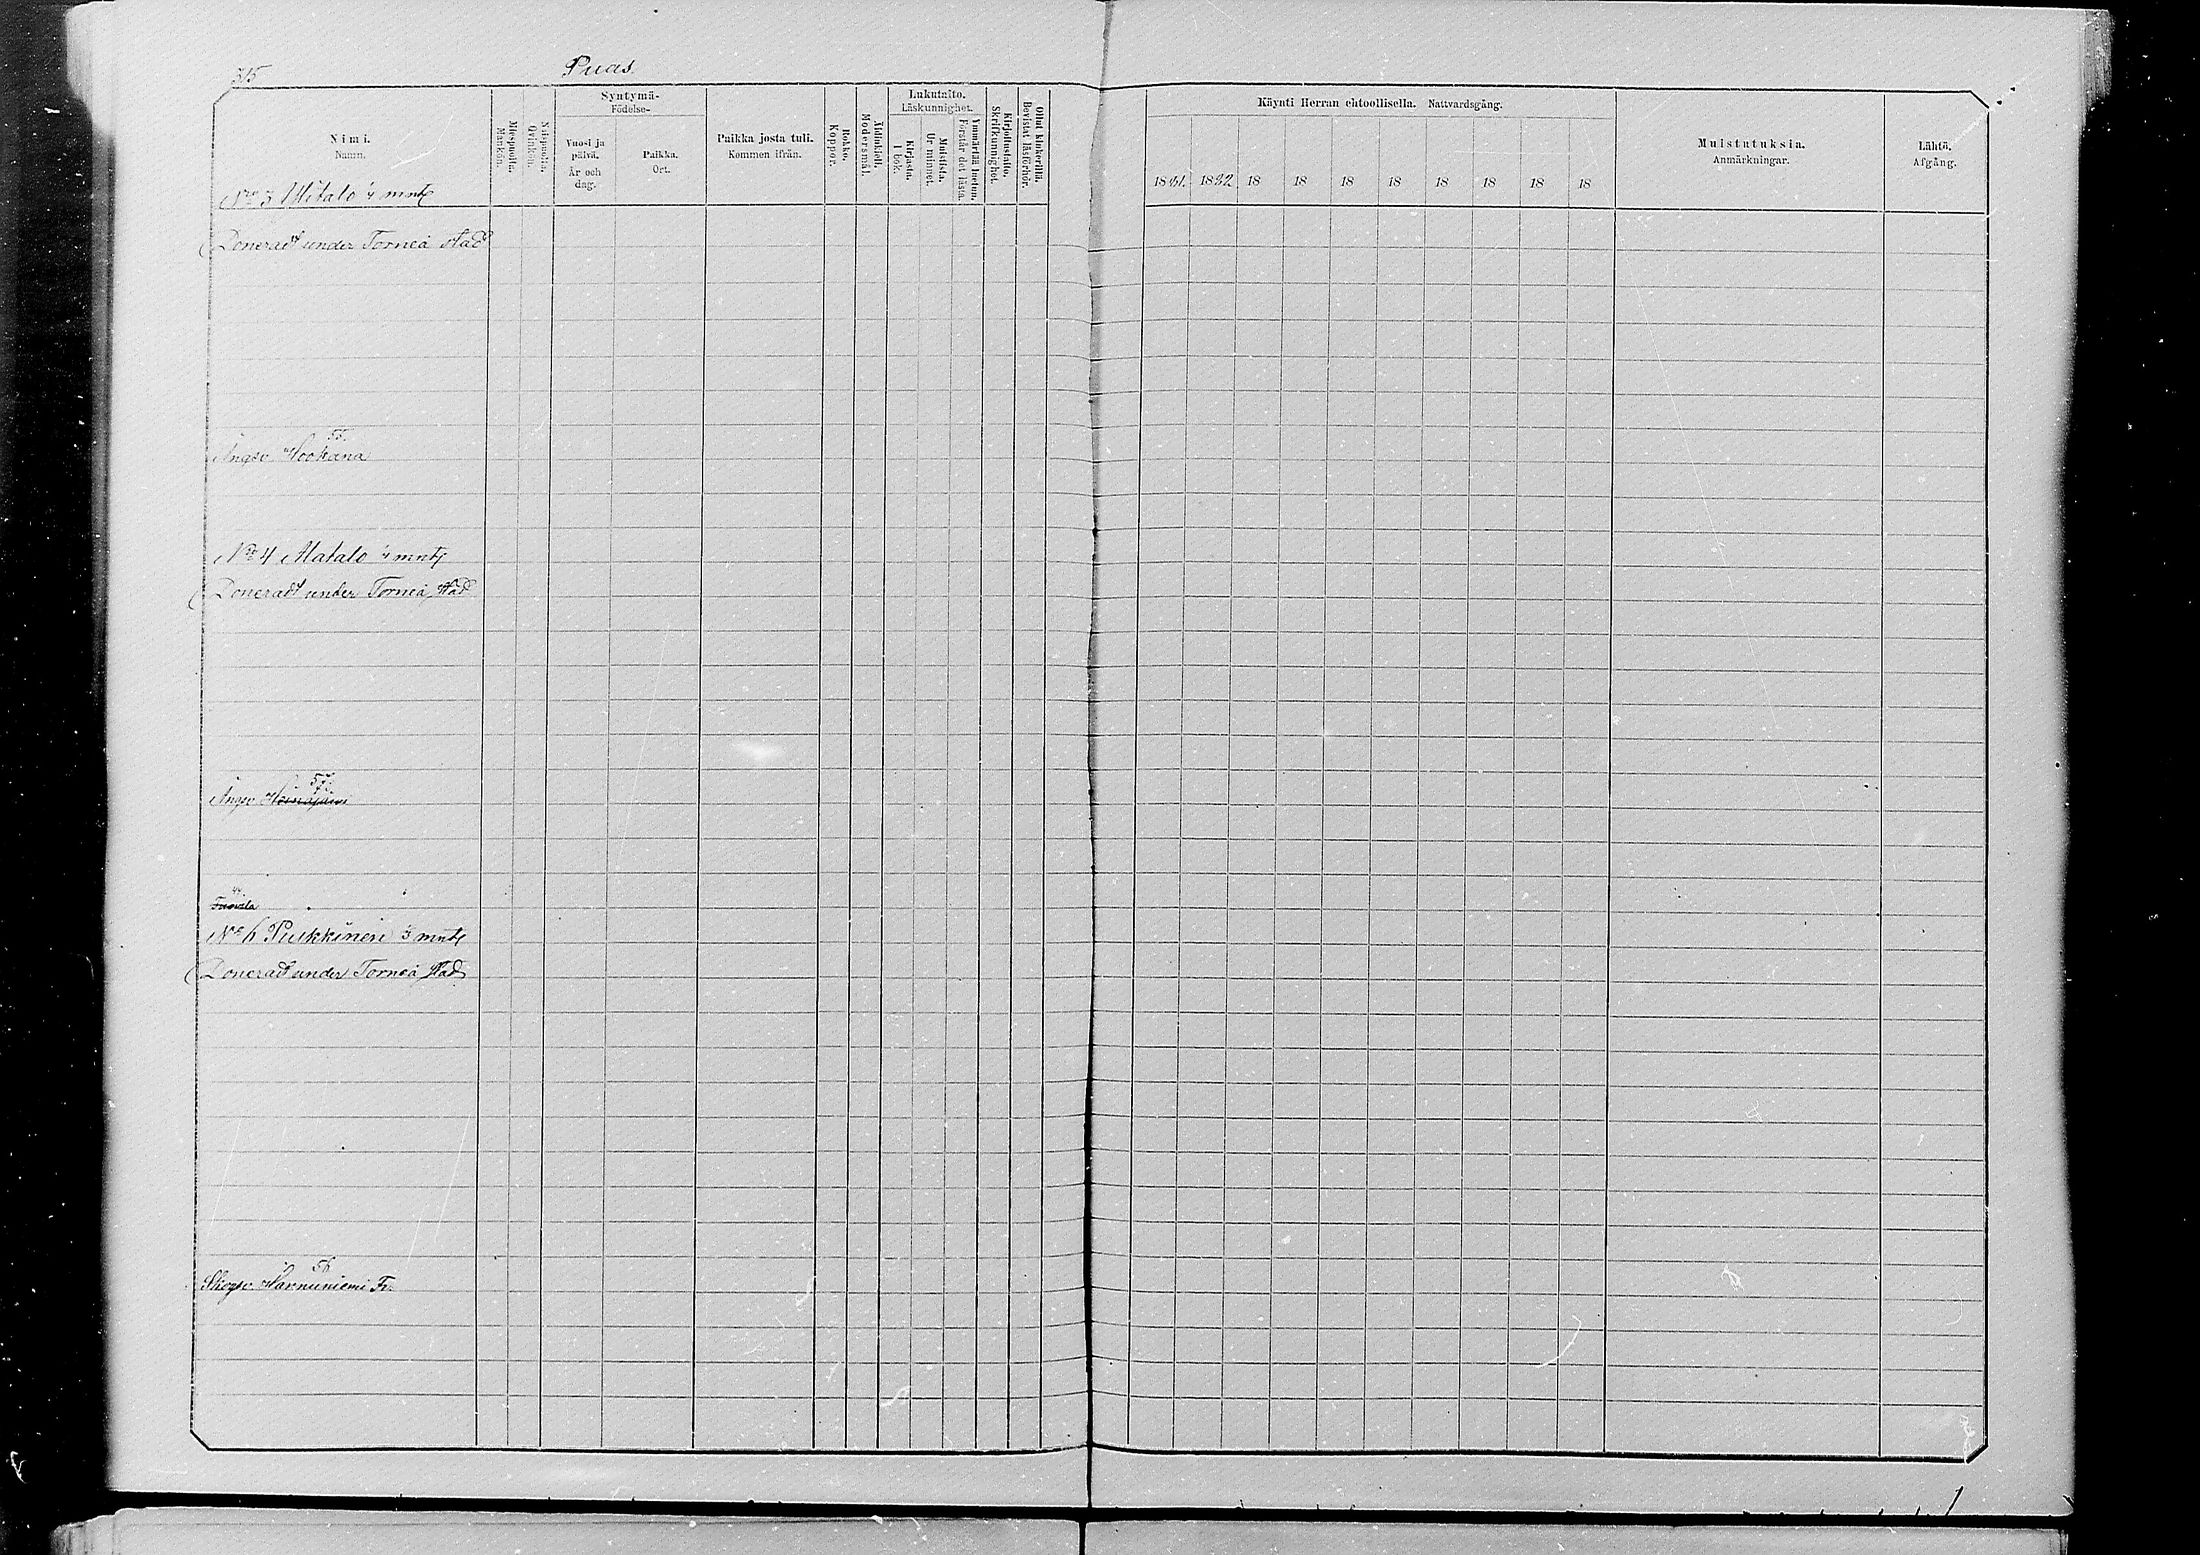 315
Puas.
Nimi.
Namn.
Miespuolia.
Mankön.
Naispuolia.
Qvinkön.
Syntymä-
Födelse-
Vuosi ja
päivä.
År och
dag.
Paikka.
Ort.
Paikka josta tuli.
Kommen ifrån.
Rokko.
Koppor.
Äidinkieli.
Modersmål.
Lukutaito.
Läskunnighet.
Kirjasta.
I bok.
Muistista.
Ur minnet.
Ymmärtää luetun.
Förstår det lästa.
Kirjoitustaito.
Skrifkunnighet.
Ollut kinkerillä.
Bevistat läsförhör.
Käynti Herran ehtoollisella. Nattvardsgång.
1881. 1882 18 18 18 18 18 18 18 18
Muistutuksia.
Anmärkningar.
Lähtö.
Afgång.
No 3 Ylitalo 1/4 mntl
Doneradt under Torneå stad
55.
Ängsv.
No 4 Alatalo 1/4 mntl
Doneradt under Torneå stad
57.
Ängsv Heinäjärvi
44.
No 6 Puikkinen 1/3 mntl
Doneradt under Torneå stad
56
Skogsv. Harnuniemi Fr.